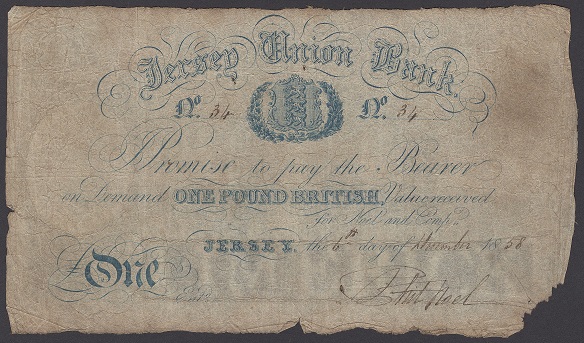 Jersey Union Bank.
No. 34 No. 34
I Promise to pay the Bearer
on Demand ONE POUND BRITISH, Value received
For Noel and Compy.
JERSEY, the 6th day of December 1858
£ One
Noel